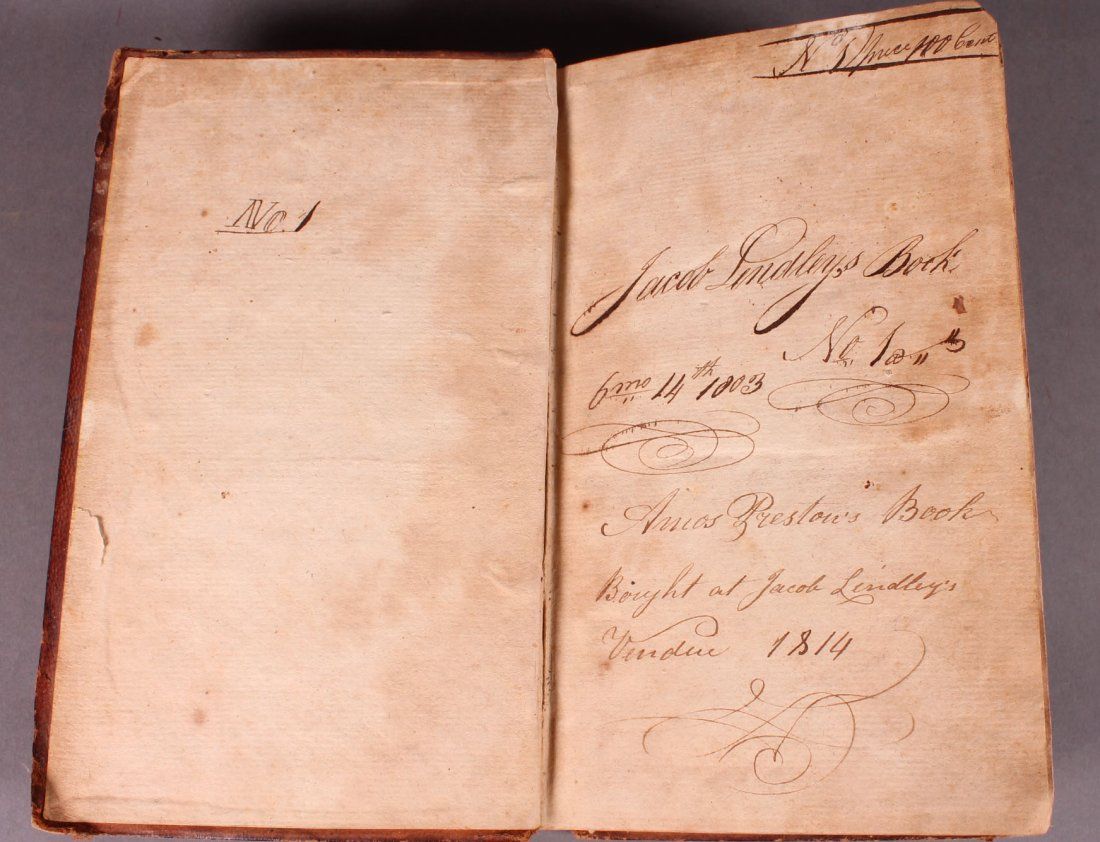 No. 1
No 1 price 100 Cents
Jacob Lindley's Book
No 1
6mo 14th 1803
Amos Preston's Book
Bought at Jacob Lindley's
Vendue 1814